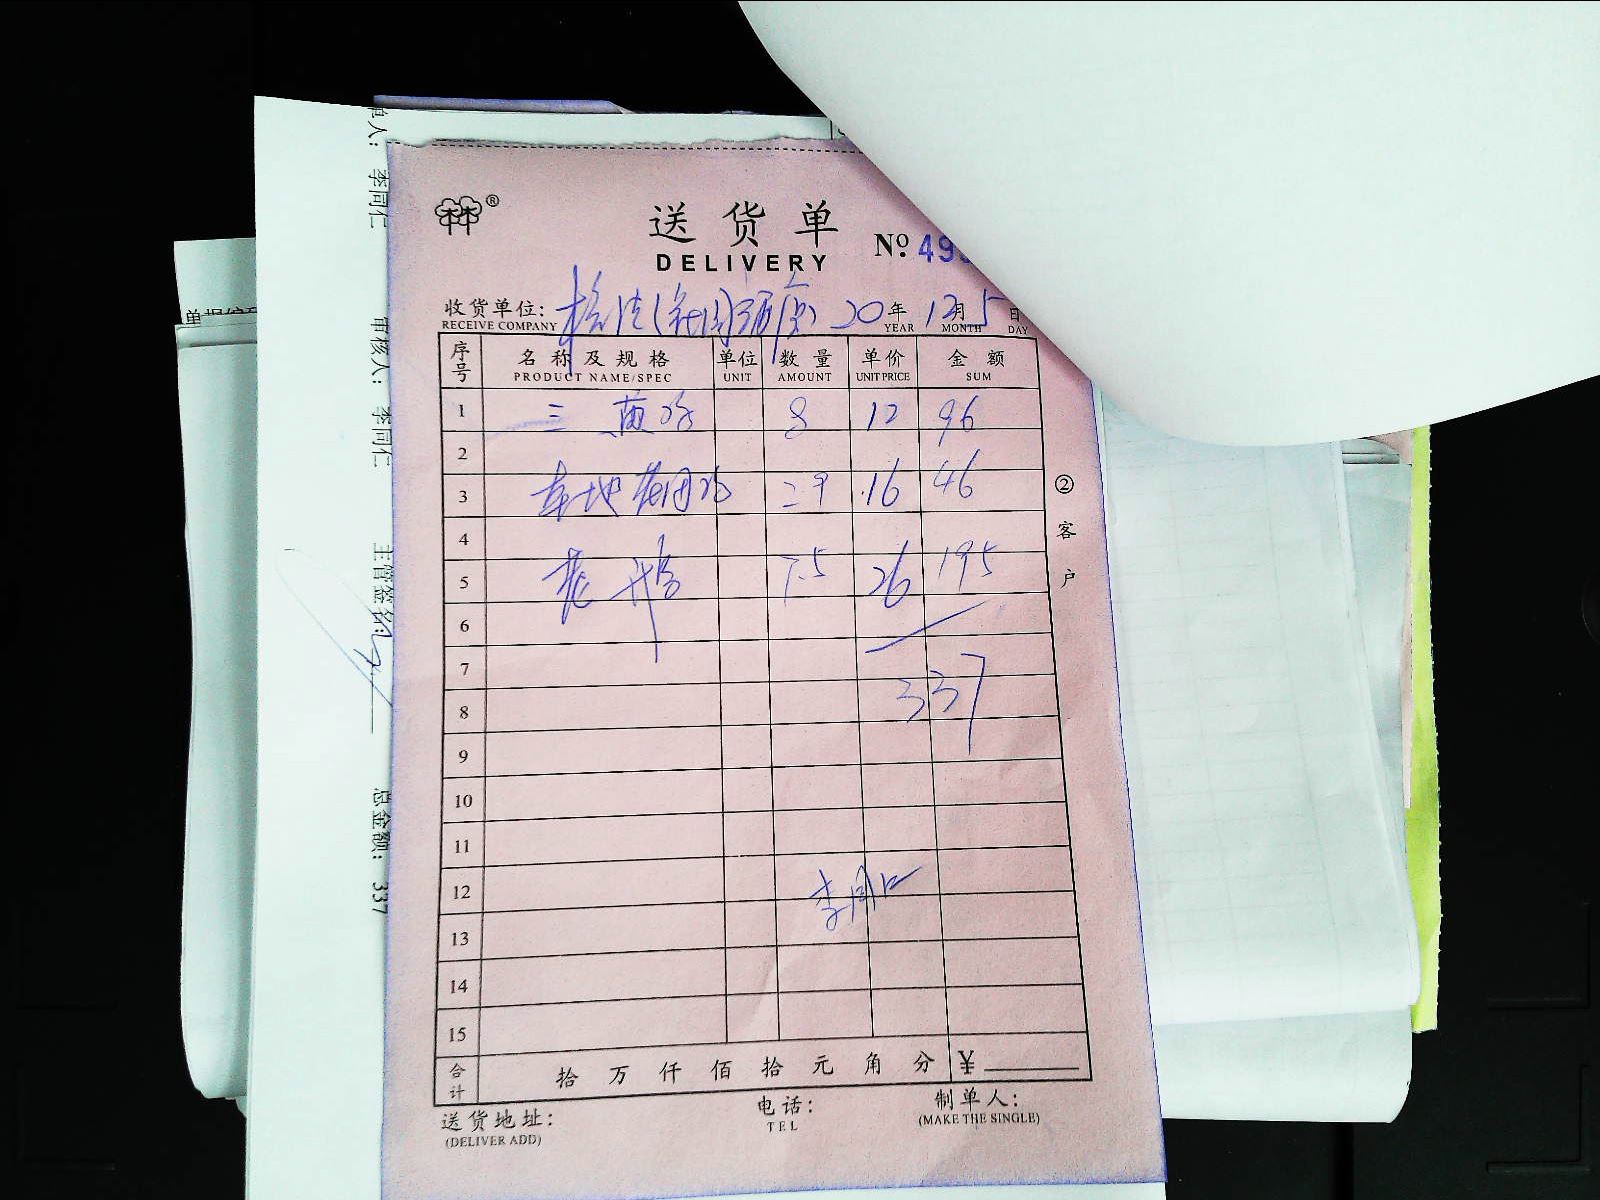 单人: 李同仁 审核人: 李同仁 主管签名: 总金额: 337
单据编
®
送货单
DELIVERY
№ 49
收货单位: 20年 12月 5日
RECEIVE COMPANY YEAR MONTH DAY
序号 名称及规格 单位 数量 单价 金额
PRODUCT NAME/SPEC UNIT AMOUNT UNIT PRICE SUM
1 三黄鸡 8 12 96
2
3 本地 16 46
4
5 7.5 26 195
6
7
8 337
9
10
11
12 李同仁
13
14
15
合计 拾 万 仟 佰 拾 元 角 分 ¥
② 客户
送货地址: 电话: 制单人:
(DELIVER ADD) TEL (MAKE THE SINGLE)